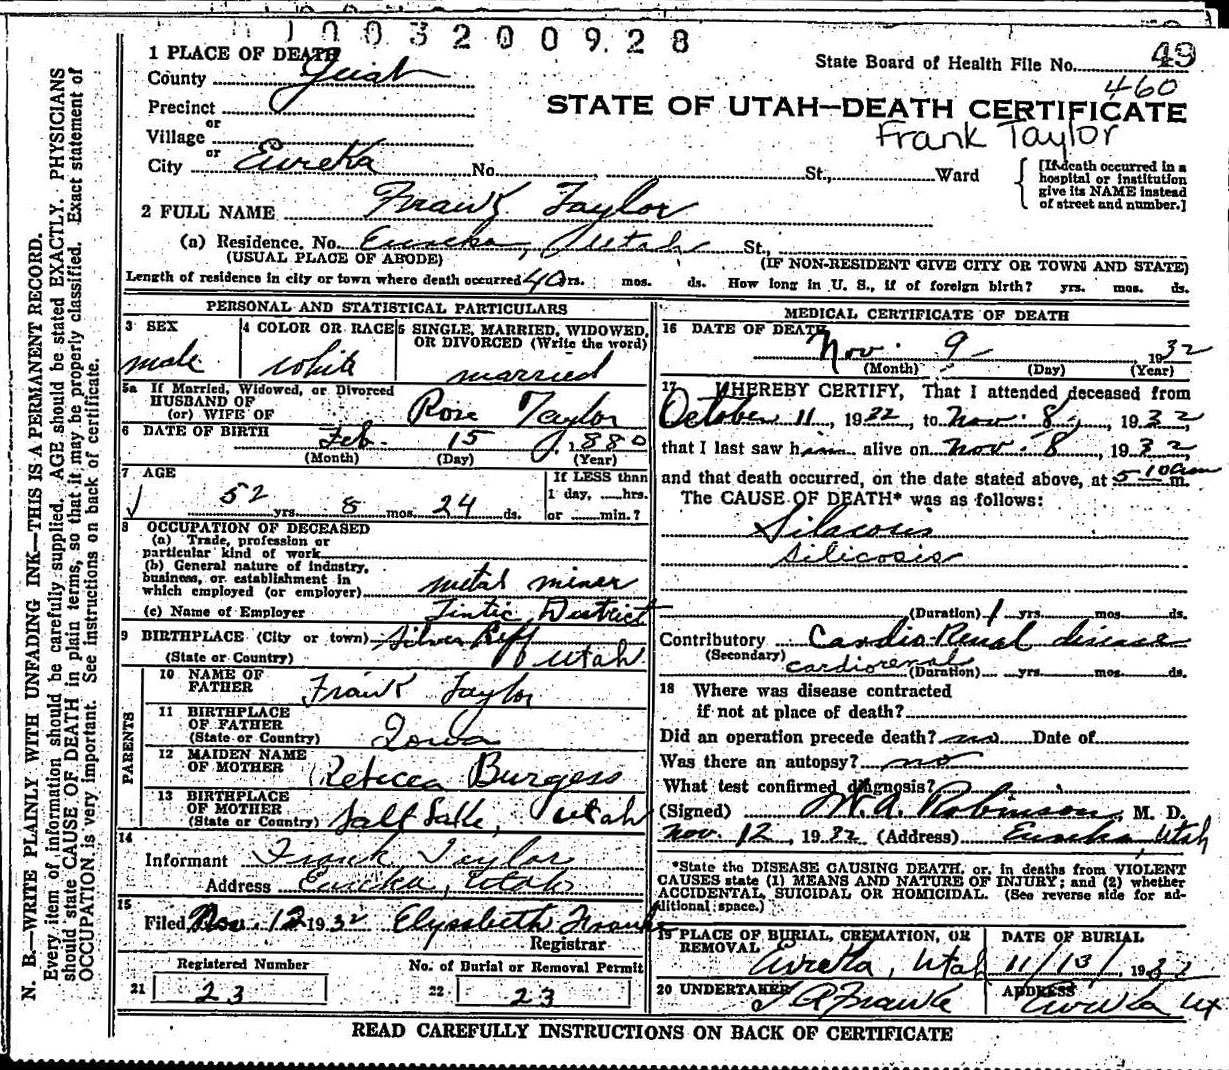 1003200928
1 PLACE OF DEATH
County Juab
State Board of Health File No. 49
460
Precinct
or
Village
STATE OF UTAH—DEATH CERTIFICATE
Frank Taylor
or
City Eureka No. St., Ward
[If death occurred in a hospital or institution give its NAME instead of street and number.]
2 FULL NAME Frank Taylor
(a) Residence. No. Eureka, Utah St.,
(USUAL PLACE OF ABODE) (IF NON-RESIDENT GIVE CITY OR TOWN AND STATE)
Length of residence in city or town where death occurred 40 yrs. mos. ds. How long in U. S., if of foreign birth? yrs. mos. ds.
PERSONAL AND STATISTICAL PARTICULARS
3 SEX 4 COLOR OR RACE 5 SINGLE, MARRIED, WIDOWED, OR DIVORCED (Write the word)
male white married
5a If Married, Widowed, or Divorced
HUSBAND OF
(or) WIFE OF Rose Taylor
6 DATE OF BIRTH Feb. 15, 1880
(Month) (Day) (Year)
7 AGE
52 yrs. 8 mos. 24 ds.
If LESS than
1 day, hrs.
or min.?
8 OCCUPATION OF DECEASED
(a) Trade, profession or
particular kind of work
(b) General nature of industry,
business, or establishment in
which employed (or employer) metal miner
(c) Name of Employer Tintic District
9 BIRTHPLACE (City or town) Silver Reff
(State or Country) Utah
PARENTS
10 NAME OF
FATHER Frank Taylor
11 BIRTHPLACE
OF FATHER
(State or Country) Iowa
12 MAIDEN NAME
OF MOTHER Rebecca Burgess
13 BIRTHPLACE
OF MOTHER
(State or Country) Salt Lake, Utah
14
Informant Frank Taylor
Address Eureka, Utah
15
Filed Nov. 12 1932 Elyssbeth Frank
Registrar
Registered Number No. of Burial or Removal Permit
21 23 22 23
MEDICAL CERTIFICATE OF DEATH
16 DATE OF DEATH
Nov. 9 - 1932
(Month) (Day) (Year)
17 I HEREBY CERTIFY, That I attended deceased from
October 11, 1922, to Nov. 8, 1932,
that I last saw him alive on Nov. 8, 1932,
and that death occurred, on the date stated above, at 5 10am m.
The CAUSE OF DEATH* was as follows:
Silacous
silicosis
(Duration) 1 yrs. mos. ds.
Contributory Cardio-Renal disease
(Secondary) cardiorenal (Duration) yrs. mos. ds.
18 Where was disease contracted
if not at place of death?
Did an operation precede death? no Date of
Was there an autopsy? no
What test confirmed diagnosis?
(Signed) W. A. Robinson, M. D.
Nov. 12, 1932 (Address) Eureka, Utah
*State the DISEASE CAUSING DEATH, or, in deaths from VIOLENT
CAUSES state (1) MEANS AND NATURE OF INJURY; and (2) whether
ACCIDENTAL, SUICIDAL OR HOMICIDAL. (See reverse side for ad-
ditional space.)
19 PLACE OF BURIAL, CREMATION, OR REMOVAL DATE OF BURIAL
Eureka, Utah 11/13/ 1932
20 UNDERTAKER ADDRESS
Eureka Ut
READ CAREFULLY INSTRUCTIONS ON BACK OF CERTIFICATE
N. B.—WRITE PLAINLY WITH UNFADING INK—THIS IS A PERMANENT RECORD.
Every item of information should be carefully supplied. AGE should be stated EXACTLY. PHYSICIANS
should state CAUSE OF DEATH in plain terms, so that it may be properly classified. Exact statement of
OCCUPATION is very important. See instructions on back of certificate.